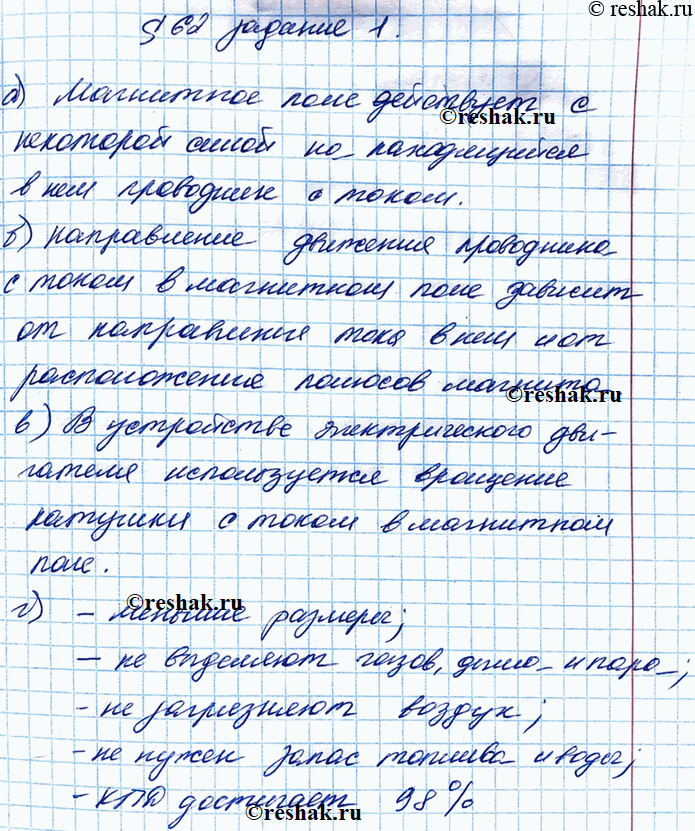 © reshak.ru
§62 задание 1.
а) Магнитное поле действует с
©reshak.ru
некоторой силой на находящийся
в нем проводник с током.
б) Направление движения проводника
с током в магнитном поле зависит
от направления тока в нем и от
расположения полюсов магнита
©reshak.ru
в) В устройстве электрического дви-
гателя используется вращение
катушки с током в магнитном
поле.
©reshak.ru
г) - меньшие размеры;
- не выделяют газов, дыма и пара;
- не загрязняют воздух;
- не нужен запас топлива и воды;
- КПД достигает 98%
©reshak.ru